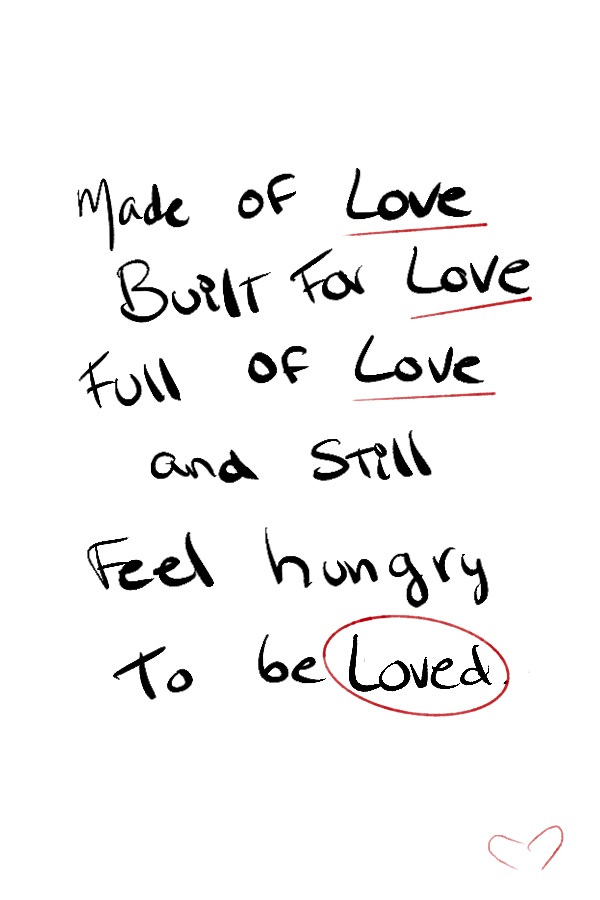 Made of Love
Built For Love
Full of Love
and Still
Feel hungry
To be Loved.